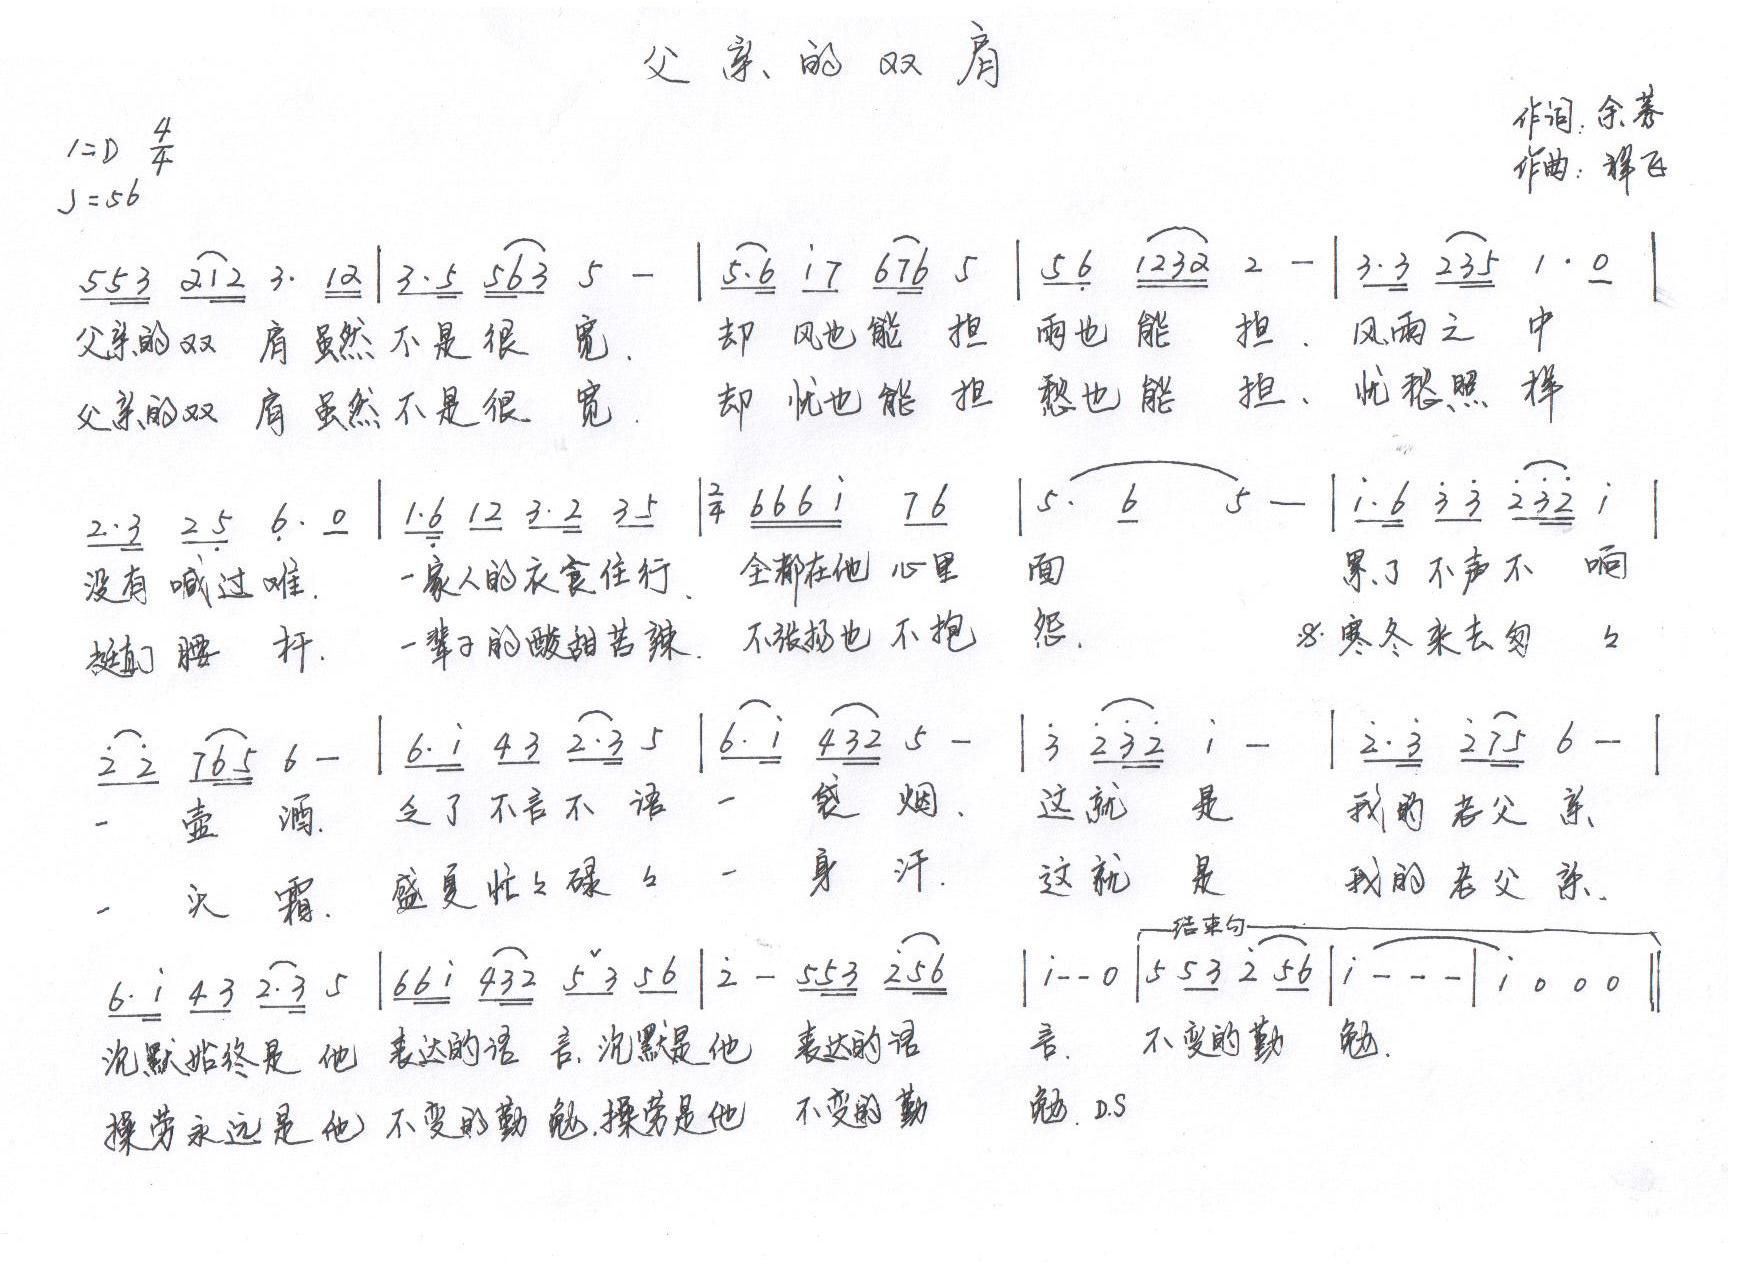 父亲的双肩
作词：余蓦
1=D 4/4
作曲：祥飞
♩=56
5 5 3 2 1 2 3· 1 2 | 3·5 5 6 3 5 — | 5·6 i 7 6 7 6 5 | 5 6 1 2 3 2 2 — | 3·3 2 3 5 1·0 |
父亲的双肩虽然不是很宽. 却风也能担雨也能担. 风雨之中
父亲的双肩虽然不是很宽. 却忧也能担愁也能担. 忧愁照样
2·3 2 5 6·0 | 1·6 1 2 3·2 3 5 | 2/4 6 6 6 i 7 6 | 5· 6 5 — | i·6 3 3 2 3 2 i |
没有喊过难. 一家人的衣食住行. 全都在他心里面 累了不声不响
挺直了腰杆. 一辈子的酸甜苦辣. 不张扬也不抱怨. 𝄋 寒冬来去匆々
2 2 7 6 5 6 — | 6·i 4 3 2·3 5 | 6·i 4 3 2 5 — | 3 2 3 2 i — | 2·3 2 7 5 6 — |
一壶酒. 乏了不言不语一袋烟. 这就是我的老父亲.
一头霜. 盛夏忙々碌々一身汗. 这就是我的老父亲.
结束句
6·i 4 3 2·3 5 | 6 6 i 4 3 2 5 ˇ 3 5 6 | 2 — 5 5 3 2 5 6 | i — — 0 | 5 5 3 2 5 6 | i — — — | i 0 0 0 ‖
沉默始终是他表达的语言. 沉默是他表达的语言. 不变的勤勉.
操劳永远是他不变的勤勉. 操劳是他不变的勤勉. D.S